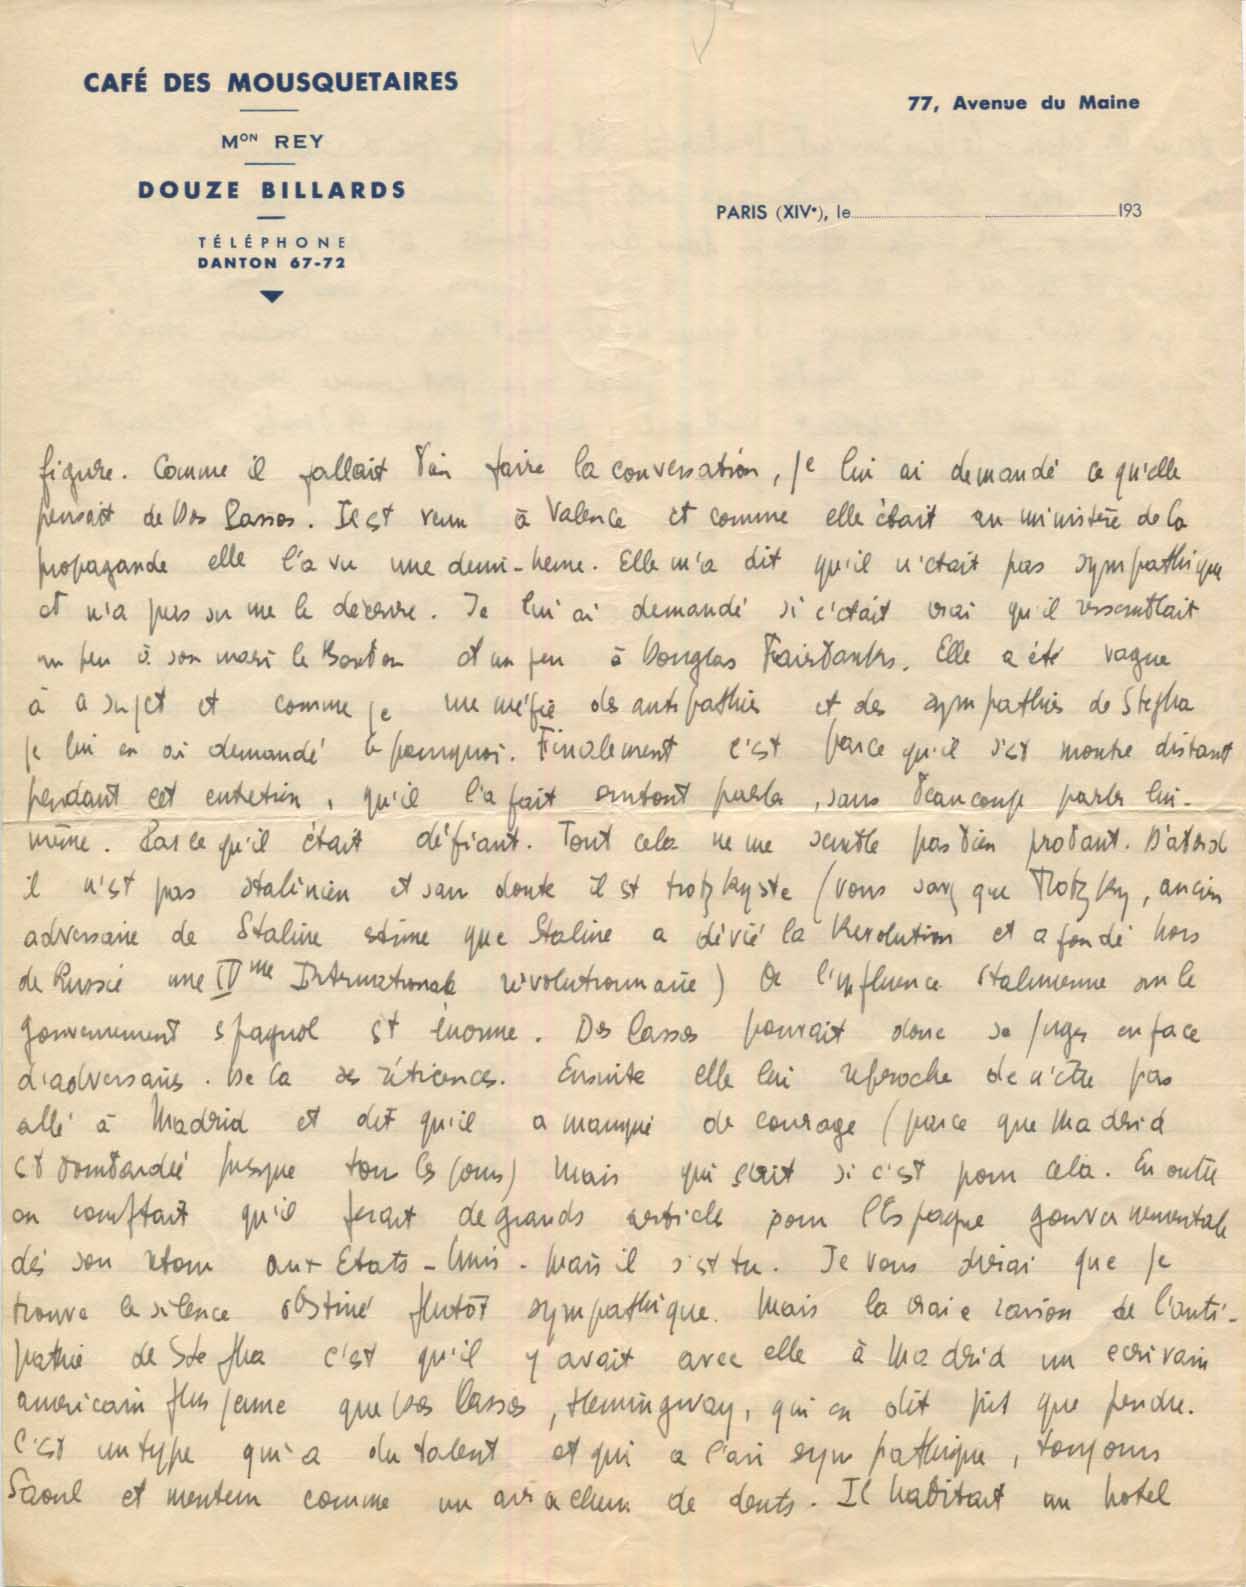 CAFÉ DES MOUSQUETAIRES
Mᴼᴺ REY
DOUZE BILLARDS
TÉLÉPHONE
DANTON 67-72
77, Avenue du Maine
PARIS (XIVᵉ), le 193
figure. Comme il fallait bien faire la conversation, je lui ai demandé ce qu'elle
pensait de Dos Passos. Il est venu à Valence et comme elle était au ministère de la
propagande elle l'a vu une demi-heure. Elle m'a dit qu'il n'était pas sympathique
et n'a pas su me le décrire. Je lui ai demandé si c'était vrai qu'il ressemblait
un peu à son mari le et un peu à Douglas Fairbanks. Elle a été vague
à ce sujet et comme je me méfie des antipathies et des sympathies de Stépha
je lui en ai demandé le pourquoi. Finalement c'est parce qu'il s'est montré distant
pendant cet entretien, qu'il l'a fait surtout parler, sans beaucoup parler lui-
même. Parce qu'il était défiant. Tout cela ne me semble pas bien probant. D'abord
il n'est pas stalinien et sans doute il est trotzkyste (vous savez que Trotzky, ancien
adversaire de Staline estime que Staline a dévié la Révolution et a fondé hors
de Russie une IVme Internationale révolutionnaire) Or l'influence stalinienne sur le
gouvernement espagnol est énorme. Dos Passos pouvait donc se juger en face
d'adversaires. De là ses réticences. Ensuite elle lui reproche de n'être pas
allé à Madrid et dit qu'il a manqué de courage (parce que Madrid
est bombardée presque tous les jours) Mais qui sait si c'est pour cela. En outre
on comptait qu'il ferait de grands articles pour l'Espagne gouvernementale
dès son retour aux Etats-Unis. Mais il s'est tu. Je vous dirai que je
trouve le silence obstiné plutôt sympathique. Mais la vraie raison de l'anti-
pathie de Stépha c'est qu'il y avait avec elle à Madrid un écrivain
américain plus jeune que Dos Passos, Hemingway, qui en dit pis que pendre.
C'est un type qui a du talent et qui a l'air sympathique, toujours
saoul et menteur comme un arracheur de dents. Il habitait un hotel